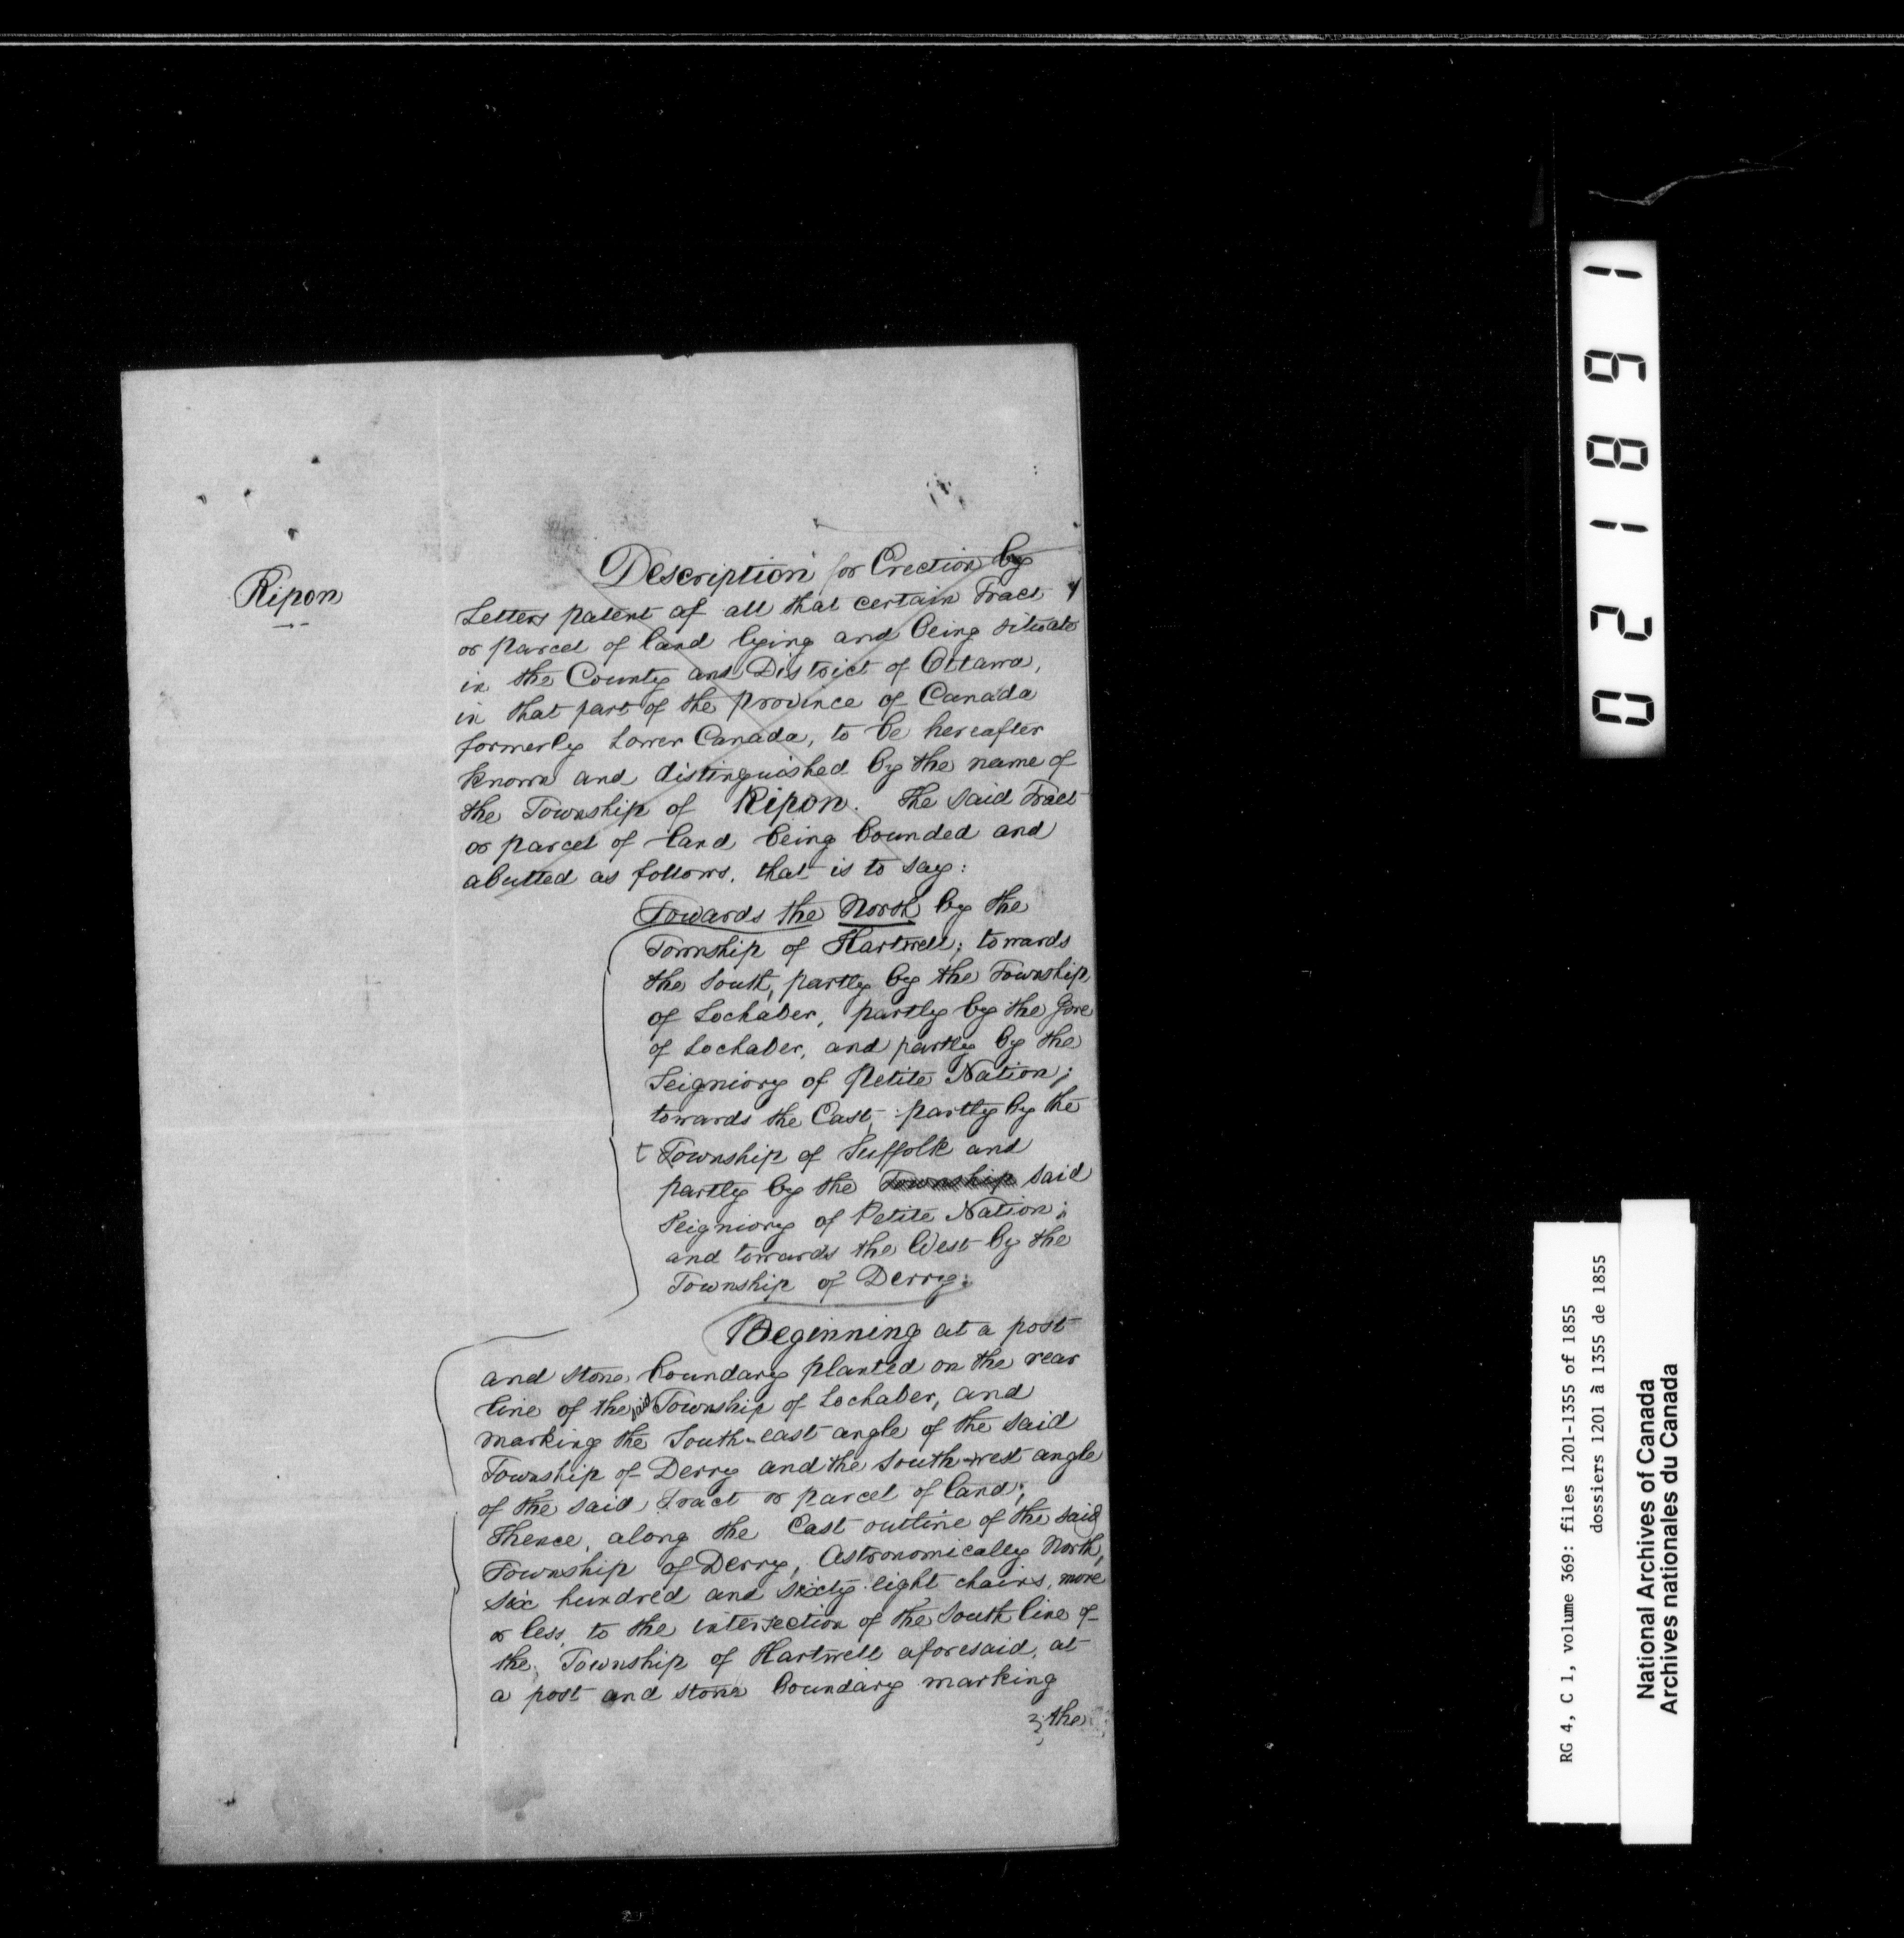 Ripon
Description for Erection by
Letters patent of all that certain Tract
or parcel of land lying and being situate
in the County and District of Ottawa,
in that part of the Province of Canada
formerly Lower Canada, to be hereafter
known and distinguished by the name of
the Township of Ripon. The said Tract
or parcel of land being bounded and
abutted as follows, that is to say:
Towards the North by the
Township of Hartwell; towards
the South, partly by the Township
of Lochaber, partly by the Gore
of Lochaber, and partly by the
Seigniory of Petite Nation;
towards the East, partly by the
Township of Suffolk and
partly by the Township said
Seigniory of Petite Nation;
and towards the West by the
Township of Derry.
Beginning at a post
and stone boundary planted on the rear
line of the said Township of Lochaber, and
marking the South-east angle of the said
Township of Derry and the South-west angle
of the said Tract or parcel of land;
Thence, along the East outline of the said
Township of Derry, Astronomically North,
six hundred and sixty eight chains, more
or less, to the intersection of the South line of
the Township of Hartwell aforesaid, at
a post and stone boundary marking
the
021891
RG 4, C 1, volume 369: files 1201-1355 of 1855
dossiers 1201 à 1355 de 1855
National Archives of Canada
Archives nationales du Canada